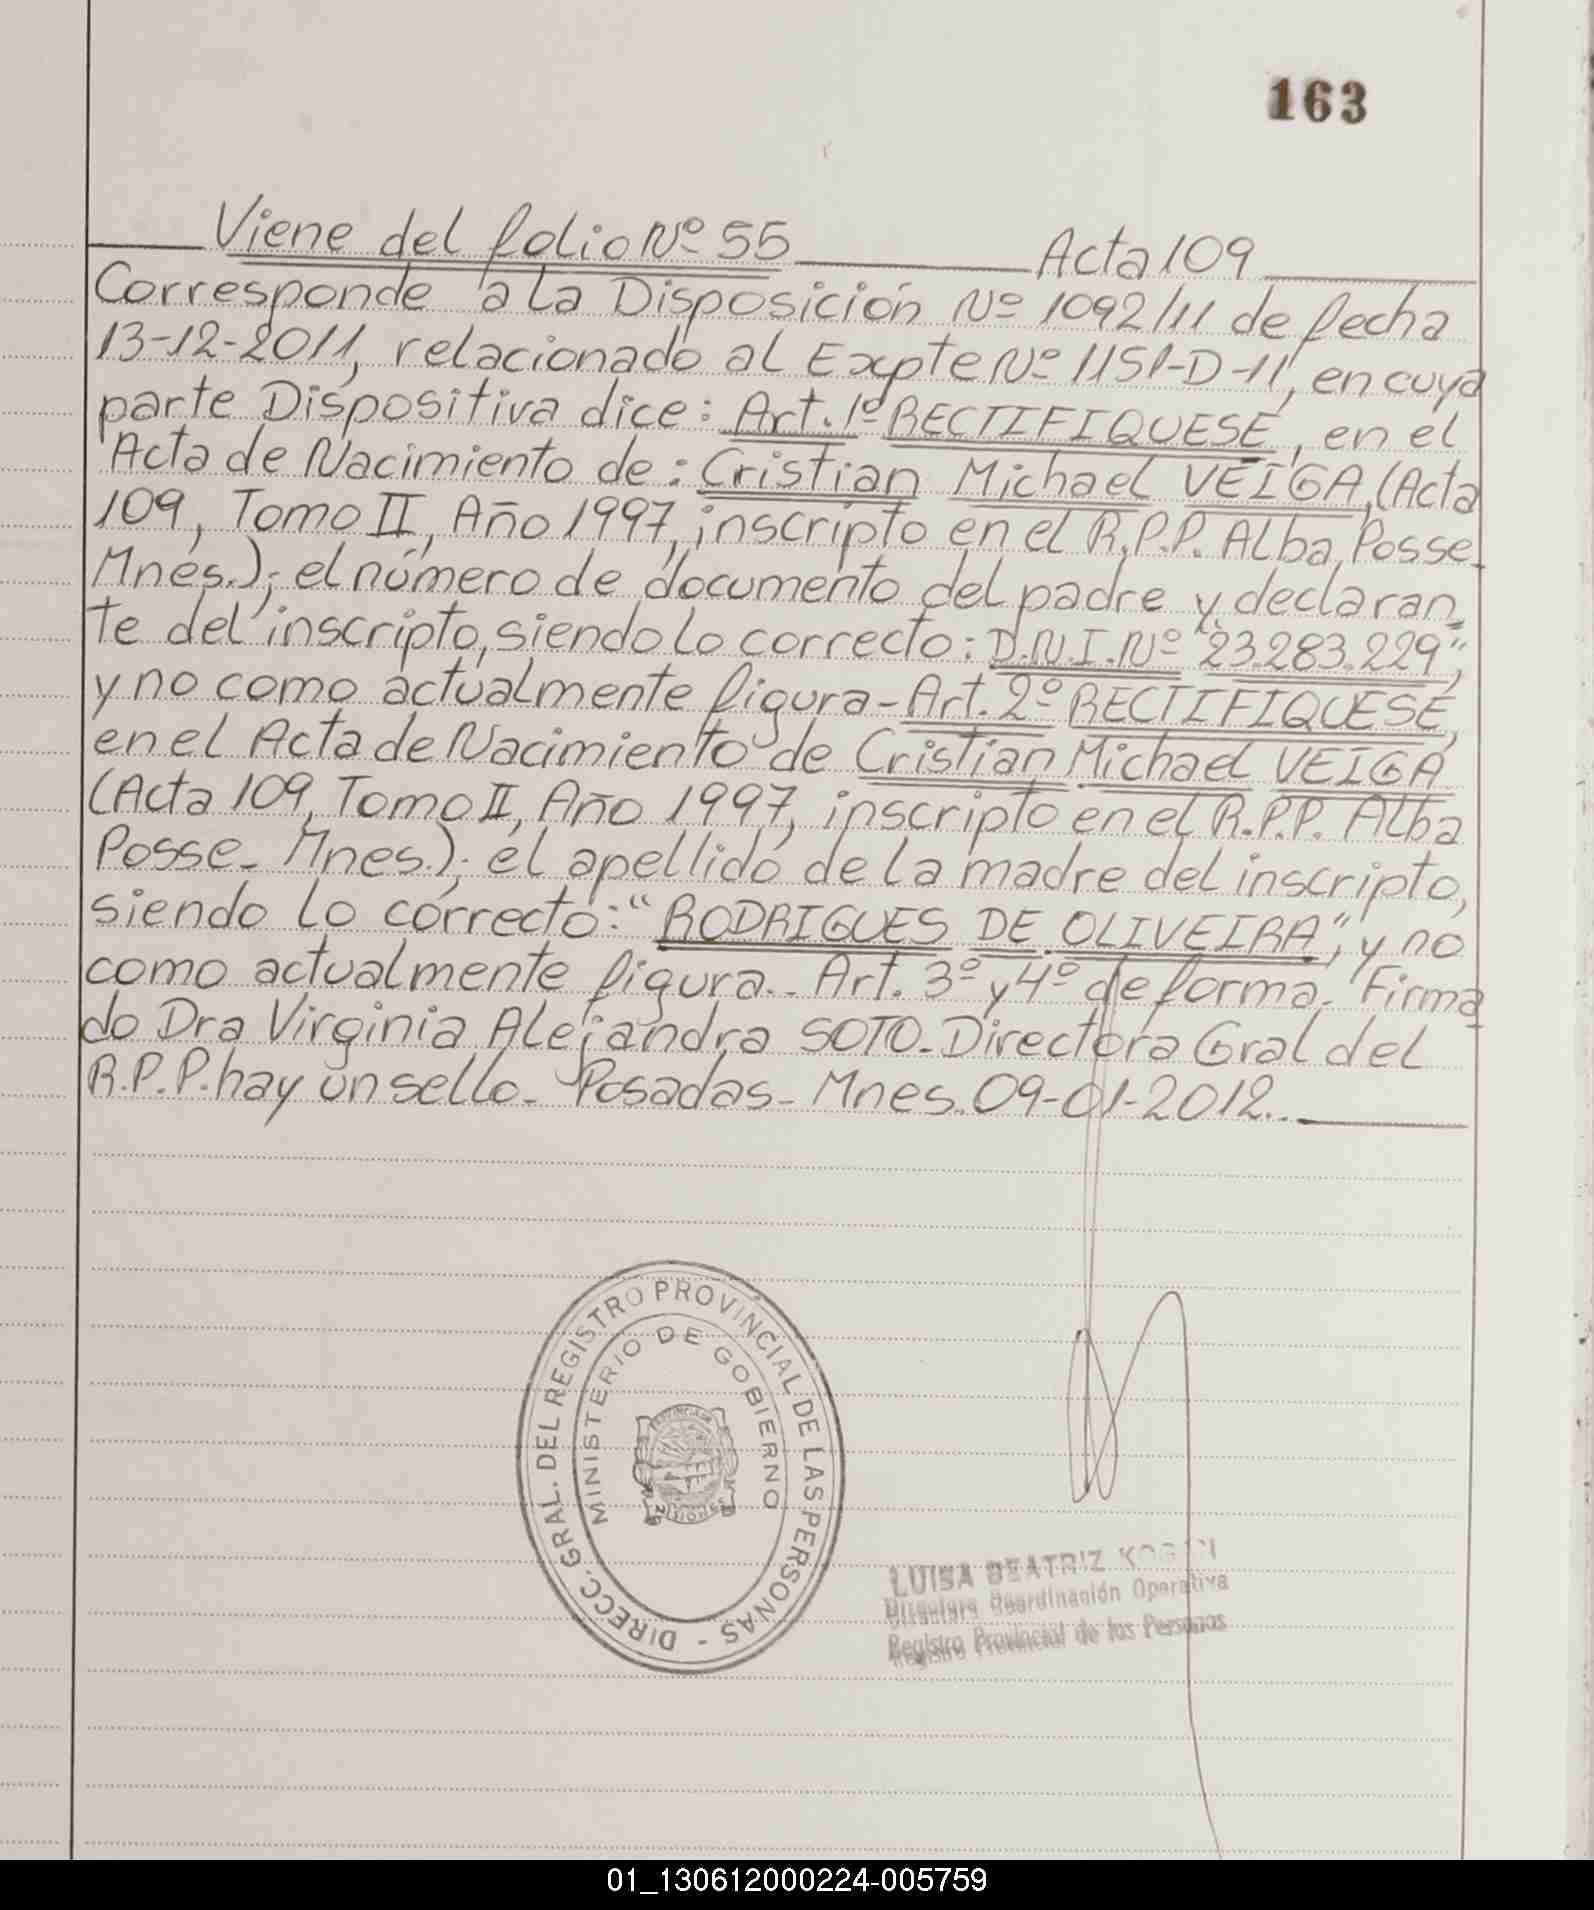 163
Viene del folio Nº 55 Acta 109
Corresponde a la Disposición Nº 1092/11 de fecha
13-12-2011, relacionado al Expte Nº 1151-D-11, en cuya
parte Dispositiva dice: Art. 1º RECTIFIQUESE, en el
Acta de Nacimiento de: Cristian Michael VEIGA, (Acta
109, Tomo II, Año 1997, inscripto en el R.P.P. Alba Posse-
Mnes.); el número de documento del padre y declaran
te del inscripto, siendo lo correcto: D.N.I. Nº "23.283.229",
y no como actualmente figura - Art. 2º RECTIFIQUESE,
en el Acta de Nacimiento de Cristian Michael VEIGA
(Acta 109, Tomo II, Año 1997, inscripto en el R.P.P. Alba
Posse- Mnes.); el apellido de la madre del inscripto,
siendo lo correcto: "RODRIGUES DE OLIVEIRA", y no
como actualmente figura.- Art. 3º y 4º de forma. Firma
do Dra Virginia Alejandra SOTO- Directora Gral del
R.P.P. hay un sello- Posadas- Mnes. 09-01-2012.-
DIRECC. GRAL. DEL REGISTRO PROVINCIAL DE LAS PERSONAS -
MINISTERIO DE GOBIERNO
LUISA BEATRIZ
Coordinación Operativa
Registro Provincial de las Personas
01_130612000224-005759